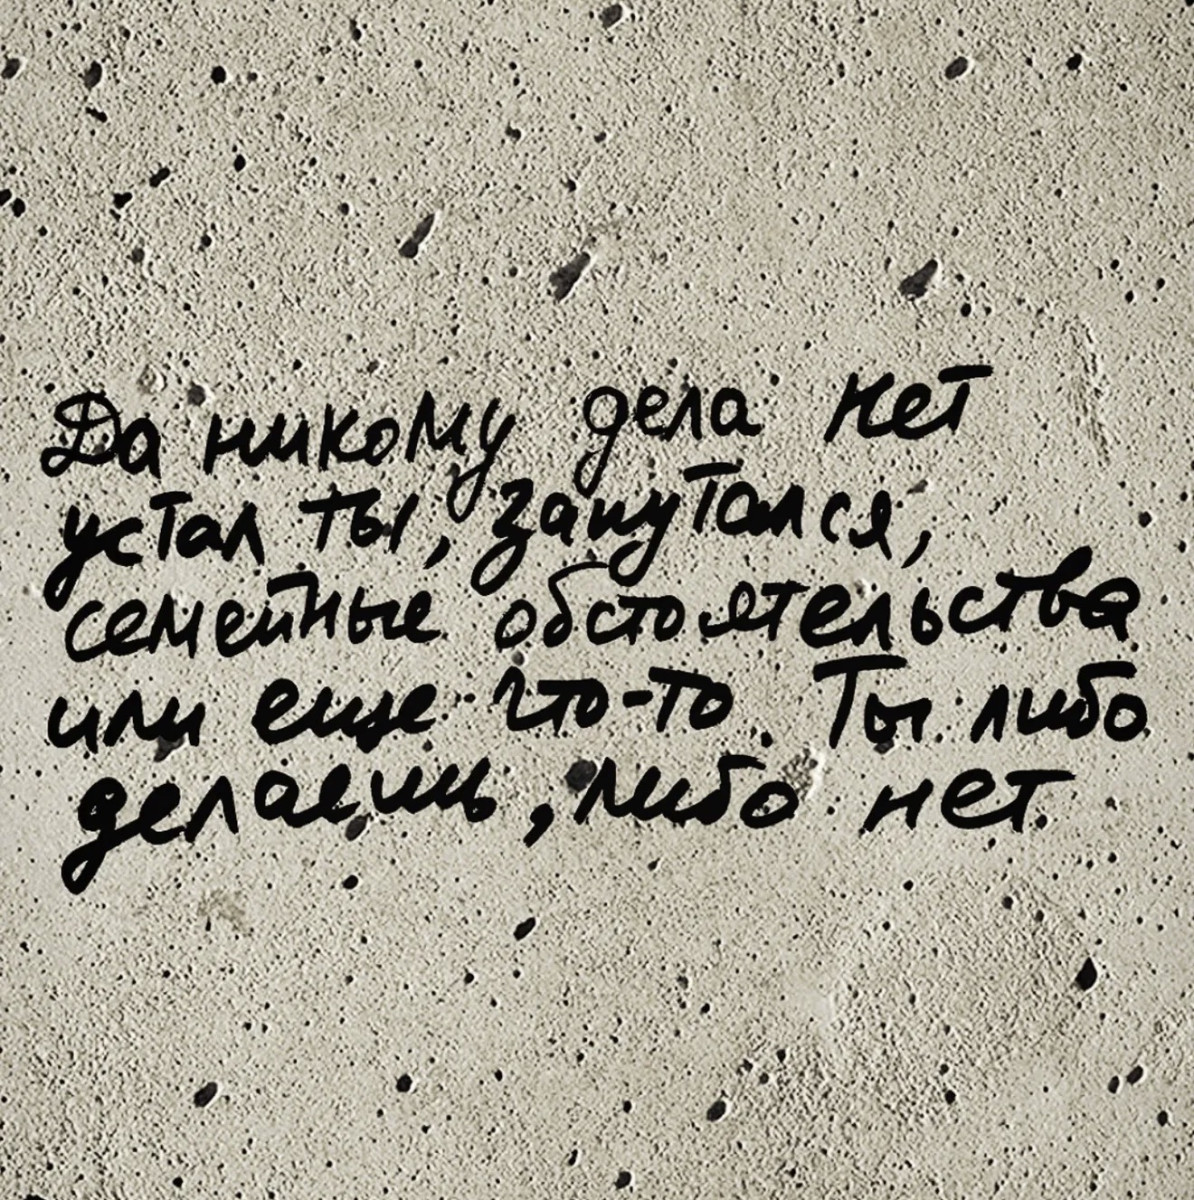 Да никому дела нет
устал ты, запутался,
семейные обстоятельства
или еще что-то. Ты либо
делаешь, либо нет.